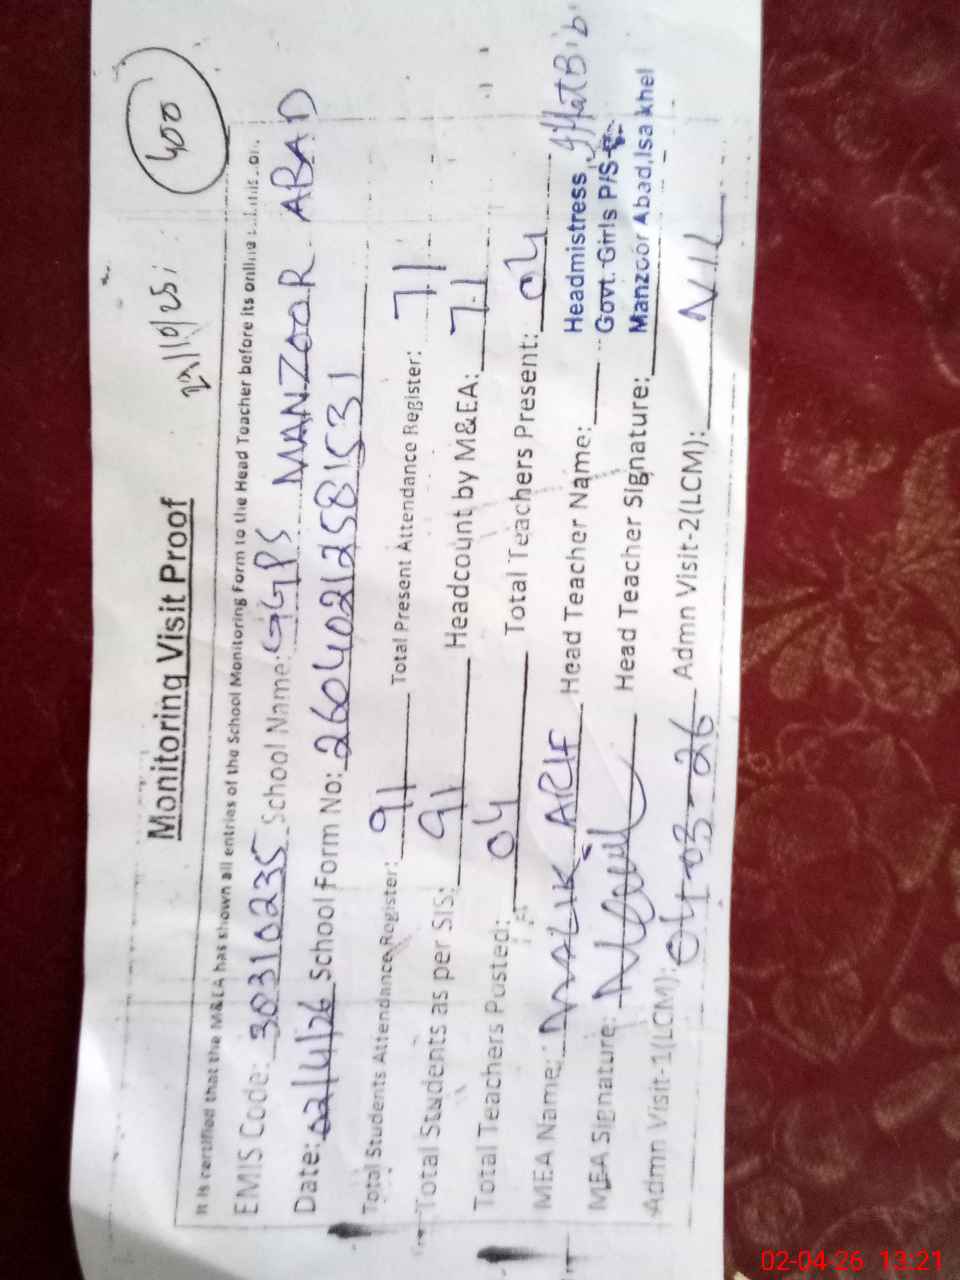 400
22/10/25
Monitoring Visit Proof
It is certified that the M&EA has shown all entries of the School Monitoring Form to the Head Teacher before its online
EMIS Code: 30310235 School Name: GGPS MANZOOR ABAD
Date: 02/4/26 School Form No: 26040212581531
Total Students Attendance Register: 91 Total Present Attendance Register: 71
Total Students as per SIS: 91 Headcount by M&EA: 71
Total Teachers Posted: 04 Total Teachers Present: 04
MEA Name: MALIK ARIF Head Teacher Name: Iffat Bibi
Headmistress
Govt. Girls P/S
Manzoor Abad, Isa khel
MEA Signature: Head Teacher Signature:
Admn Visit-1(LCM): 04-03-26 Admn Visit-2(LCM): NIL
02-04-26 13:21